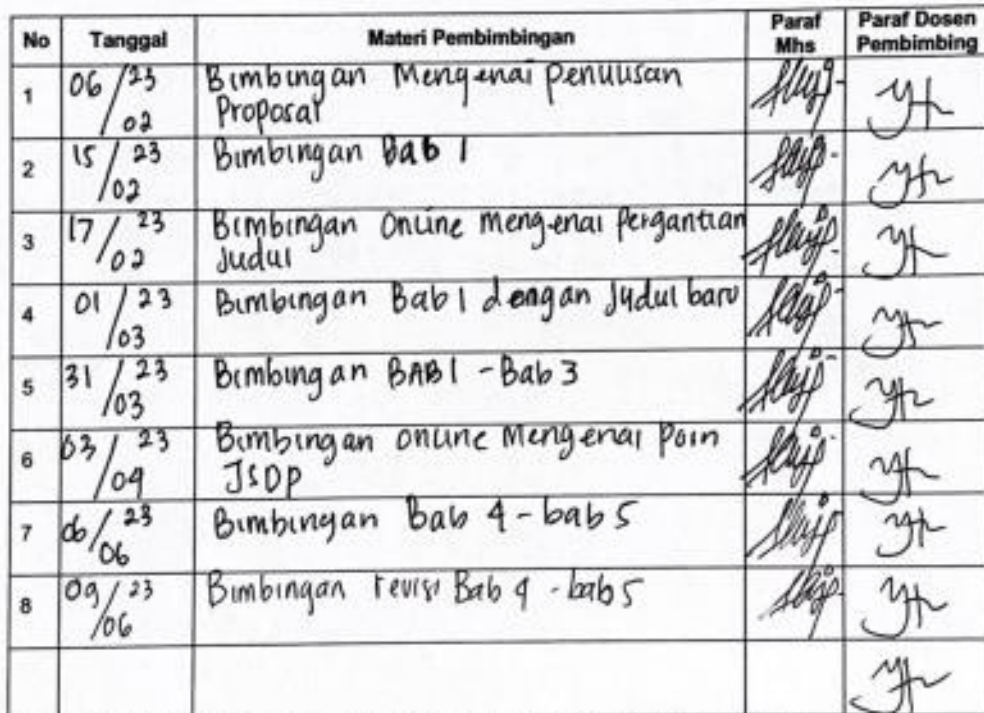 No Tanggal Materi Pembimbingan Paraf Mhs Paraf Dosen Pembimbing
1 06/23 02 Bimbingan Mengenai Penulisan
Proposal
2 15/23 02 Bimbingan Bab 1
3 17/23 02 Bimbingan Online mengenai Pergantian
Judul
4 01/23 03 Bimbingan Bab 1 dengan Judul baru
5 31/23 03 Bimbingan BAB 1 - Bab 3
6 03/23 04 Bimbingan online Mengenai Poin
JSDP
7 06/23 06 Bimbingan Bab 4 - bab 5
8 09/23 06 Bimbingan revisi Bab 4 - bab 5